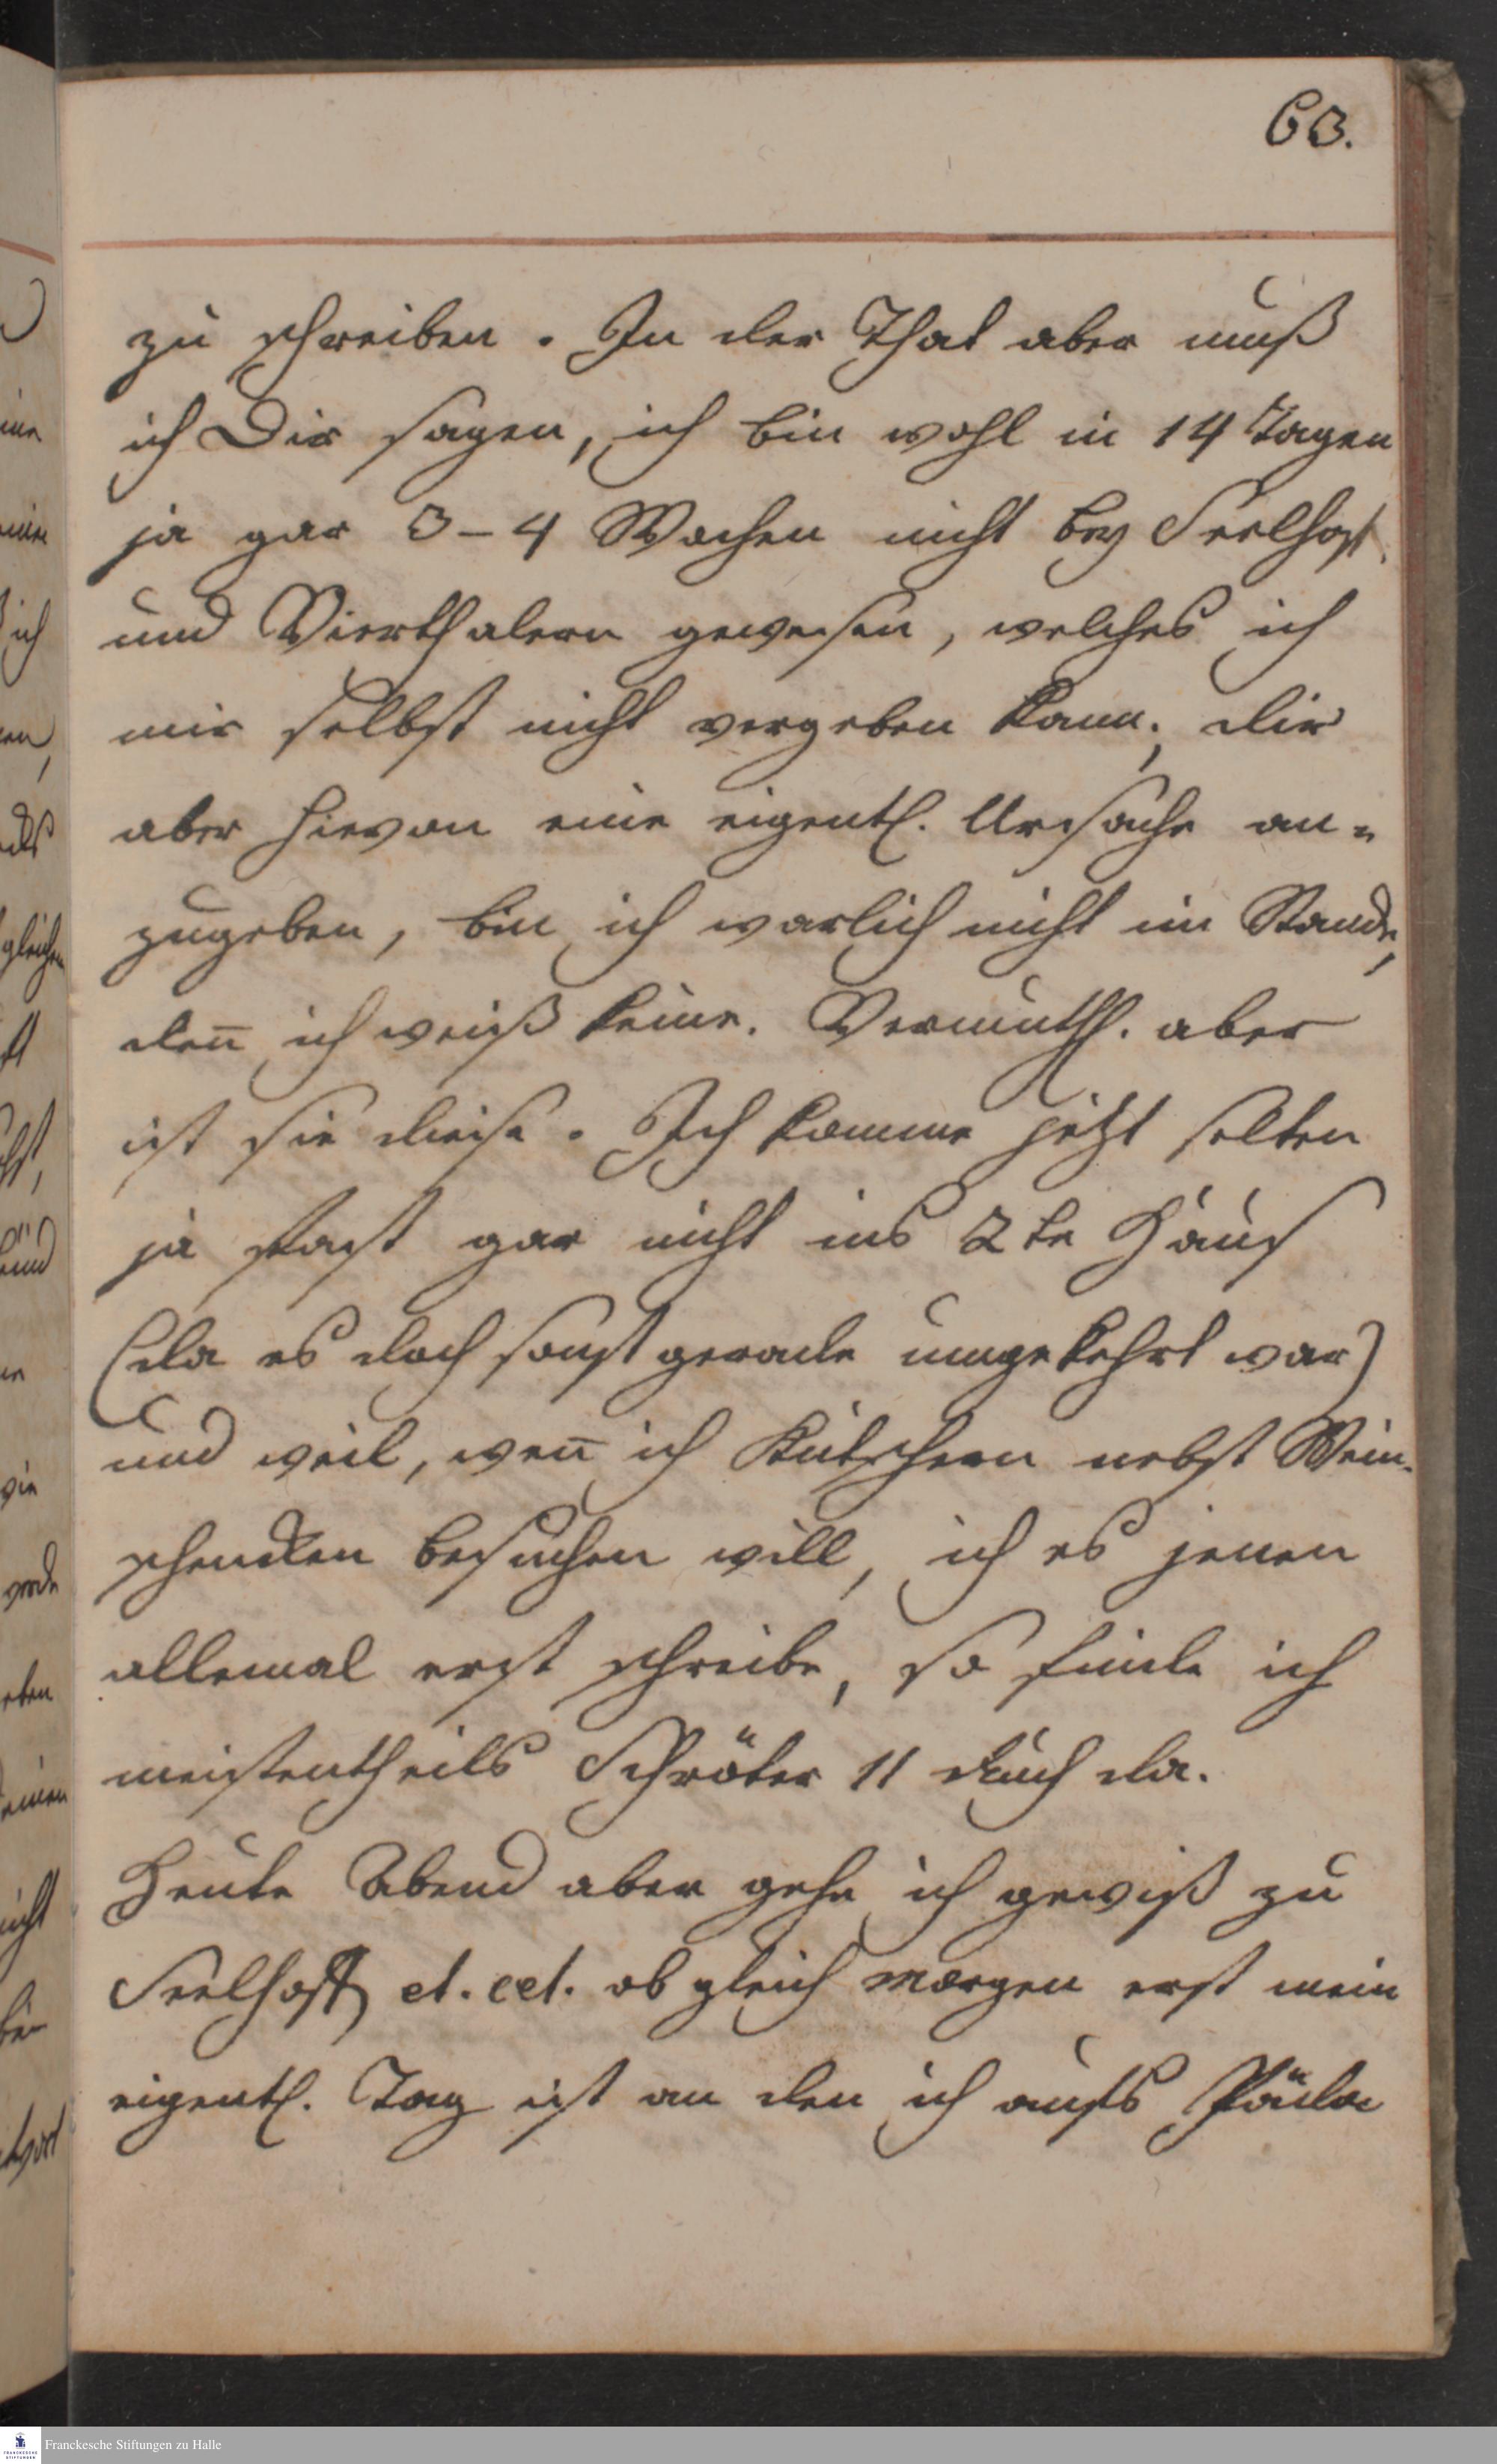 63.
zu schreiben. In der That aber muß
ich Dir sagen, ich bin wohl in 14 Tagen
ja gar 3-4 Wochen nicht bey Seelhorst
und Vierthalern gewesen, welches ich
mir selbst nicht vergeben kann; dir
aber hievon eine eigentl. Ursache an-
zugeben, bin ich warlich nicht im Stande,
den̅ ich weiß keine. Vermuthl. aber
ist sie diese. Ich komme jetzt selten
ja fast gar nicht ins 2te Haus
(da es doch sonst gerade umgekehrt war)
und weil, wen̅ ich Kutschern nebst Wein-
schencken besuchen will, ich es jenen
allemal erst schreibe, so finde ich
meistentheils Schröter 11 auch da.
Heute Abend aber gehe ich gewiß zu
et. cet. ob gleich morgen erst mein
eigentl. Tag ist an den ich aufs Päda
Franckesche Stiftungen zu Halle